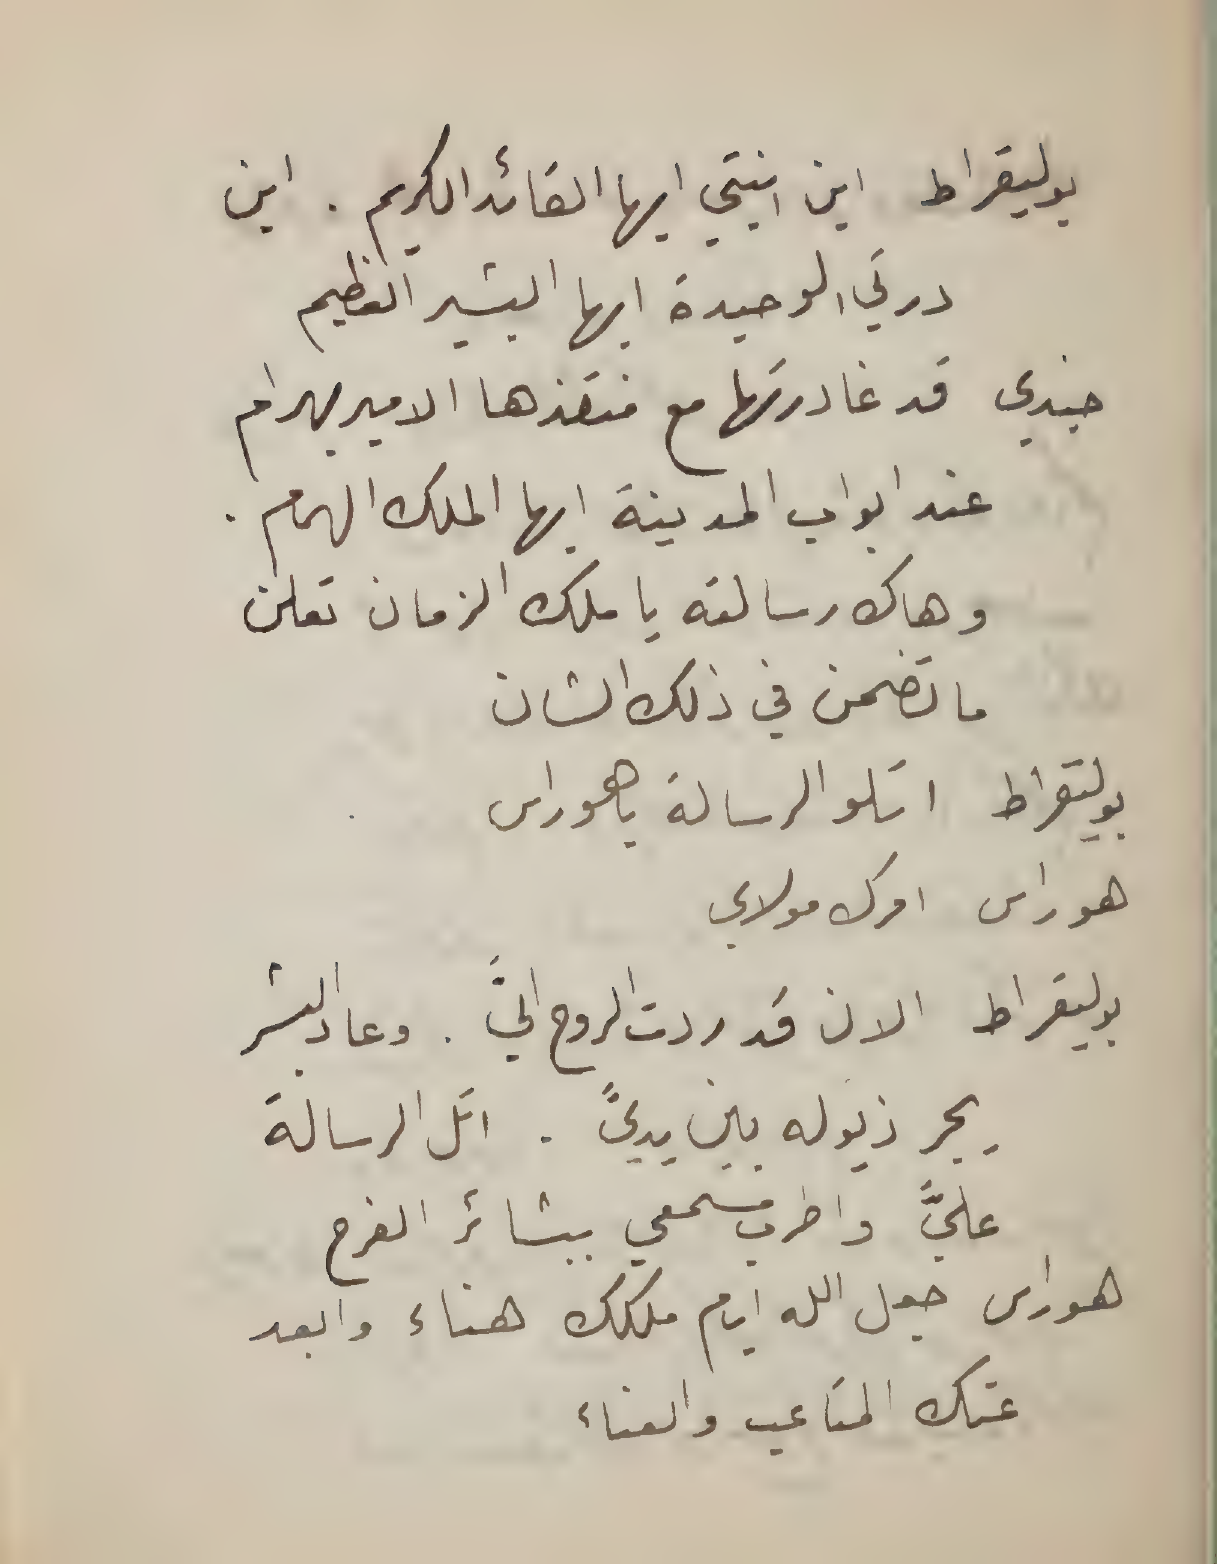 بوليقراط اين ابنتي ايها القائد الكريم . اين
درتي الوحيدة ايها البشير العظيم
جندي قد غادرتها مع منقذها الامير بهرام
عند ابواب المدينة ايها الملك الهمام .
وهاك رسالته يا ملك الزمان تعلن
ما تضمن في ذلك الشان
بوليقراط اتلو الرسالة يا هوراس
هوراس امرك مولاي
بوليقراط الان قد ردت الروح اليَّ . وعاد البشر
يجر ذيوله بين يديَّ . اتل الرسالة
عليَّ واطرب مسمعي ببشائر الفرح
هوراس جعل الله ايام ملكك هناء وابعد
عنك المتاعب والعناء